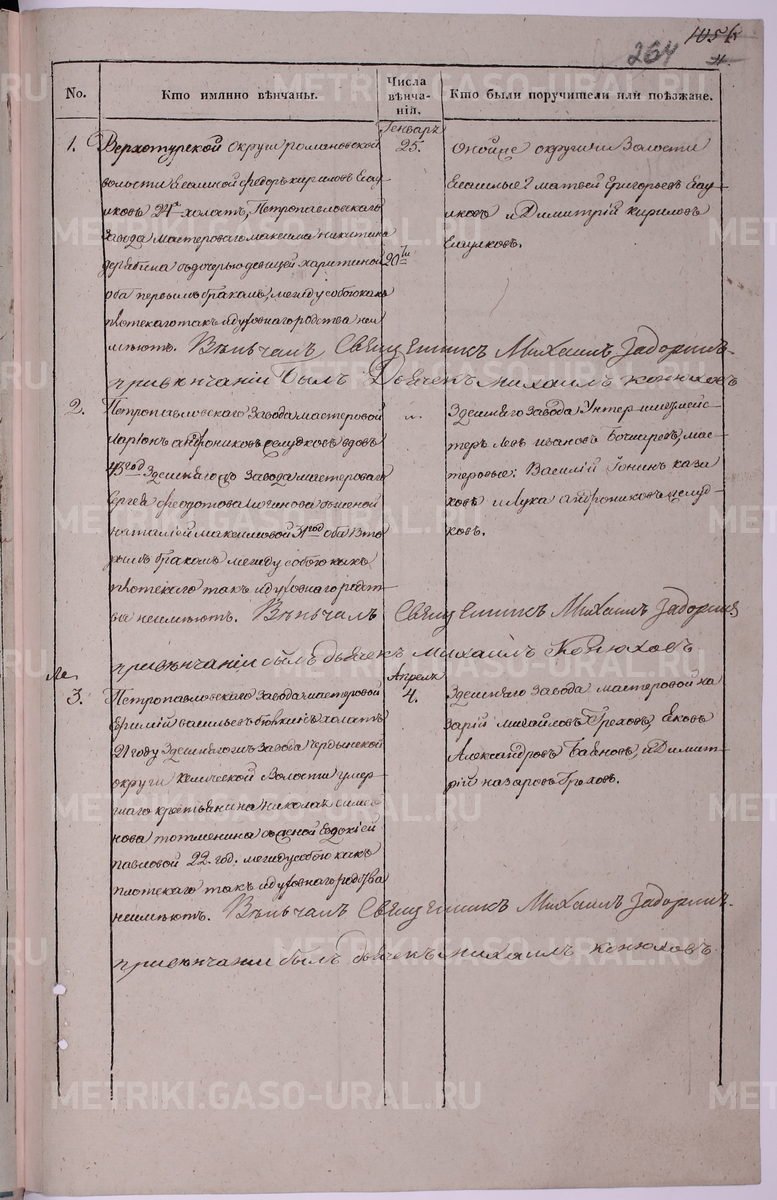 264
No.
Кто имянно вѣнчаны.
Числа вѣнча-
ній.
Кто были поручители или поѣзжане.
Генварь
1.
Верхотурской округи романовской
волости Ясашной федоръ кириловъ
24ᵣ холастъ, Петропавловскаго
Завода мастероваго максима никитина
дерябина съ дочерью девицей харитиной
оба первымъ бракомъ, между собою какъ
плотскаго такъ и духовнаго родства неи
мѣютъ. Вѣнчалъ Священникъ Михаилъ Задоринъ
привѣнчаніи былъ Дьячекъ михаилъ конюховъ
25.
20ти
Оной же округи и Волости
Ясашные: матвей Григорьевъ
и Димитрій кириловъ
2.
Петропавловскаго Завода мастеровой
ларіонъ андрониковъ вдовъ
43 год Здешняго жъ Завода мастероваго
Сергея федотова съ женой
наталіей максимовой 31 год оба Вто
рымъ бракомъ между собою какъ
плотскаго такъ и духовнаго родст
ва неимѣютъ. Вѣнчалъ Священникъ Михаилъ Задоринъ
привѣнчаніи былъ дьячекъ михаилъ Конюховъ
Здешняго Завода Унтер шихмейс
теръ левъ ивановъ мас
теровые: Василій Іонинъ каза
ковъ и лука андрониковъ
ковъ.
Апрель
3.
Петропавловскаго Завода мастеровой
Ефимій васильевъ холастъ
21 году Здешняго жъ Завода Чердынской
округи Волости умер
шаго крестьянина николая симео
нова тотменина съ женой Евдокіей
павловой 22. год. между собою какъ
плотскаго такъ и духовнаго родства
неимѣютъ. Вѣнчалъ Священникъ Михаилъ Задоринъ
привѣнчаніи былъ дьячекъ михаилъ конюховъ
4.
Здешняго Завода мастеровой на
зарій михайловъ Греховъ, Яковъ
Александровъ и Димит
рій назаровъ Греховъ.
METRIKI.GASO-URAL.RU